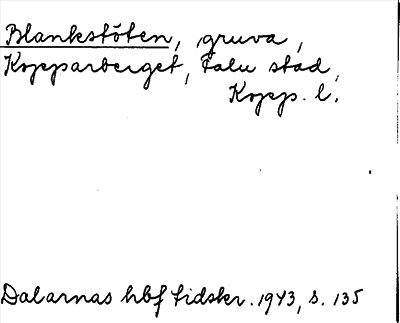 Blankstöten, gruva,
Kopparberget, Falu stad,
Kopp. l.
Dalarnas hbf tidskr. 1943, s. 135